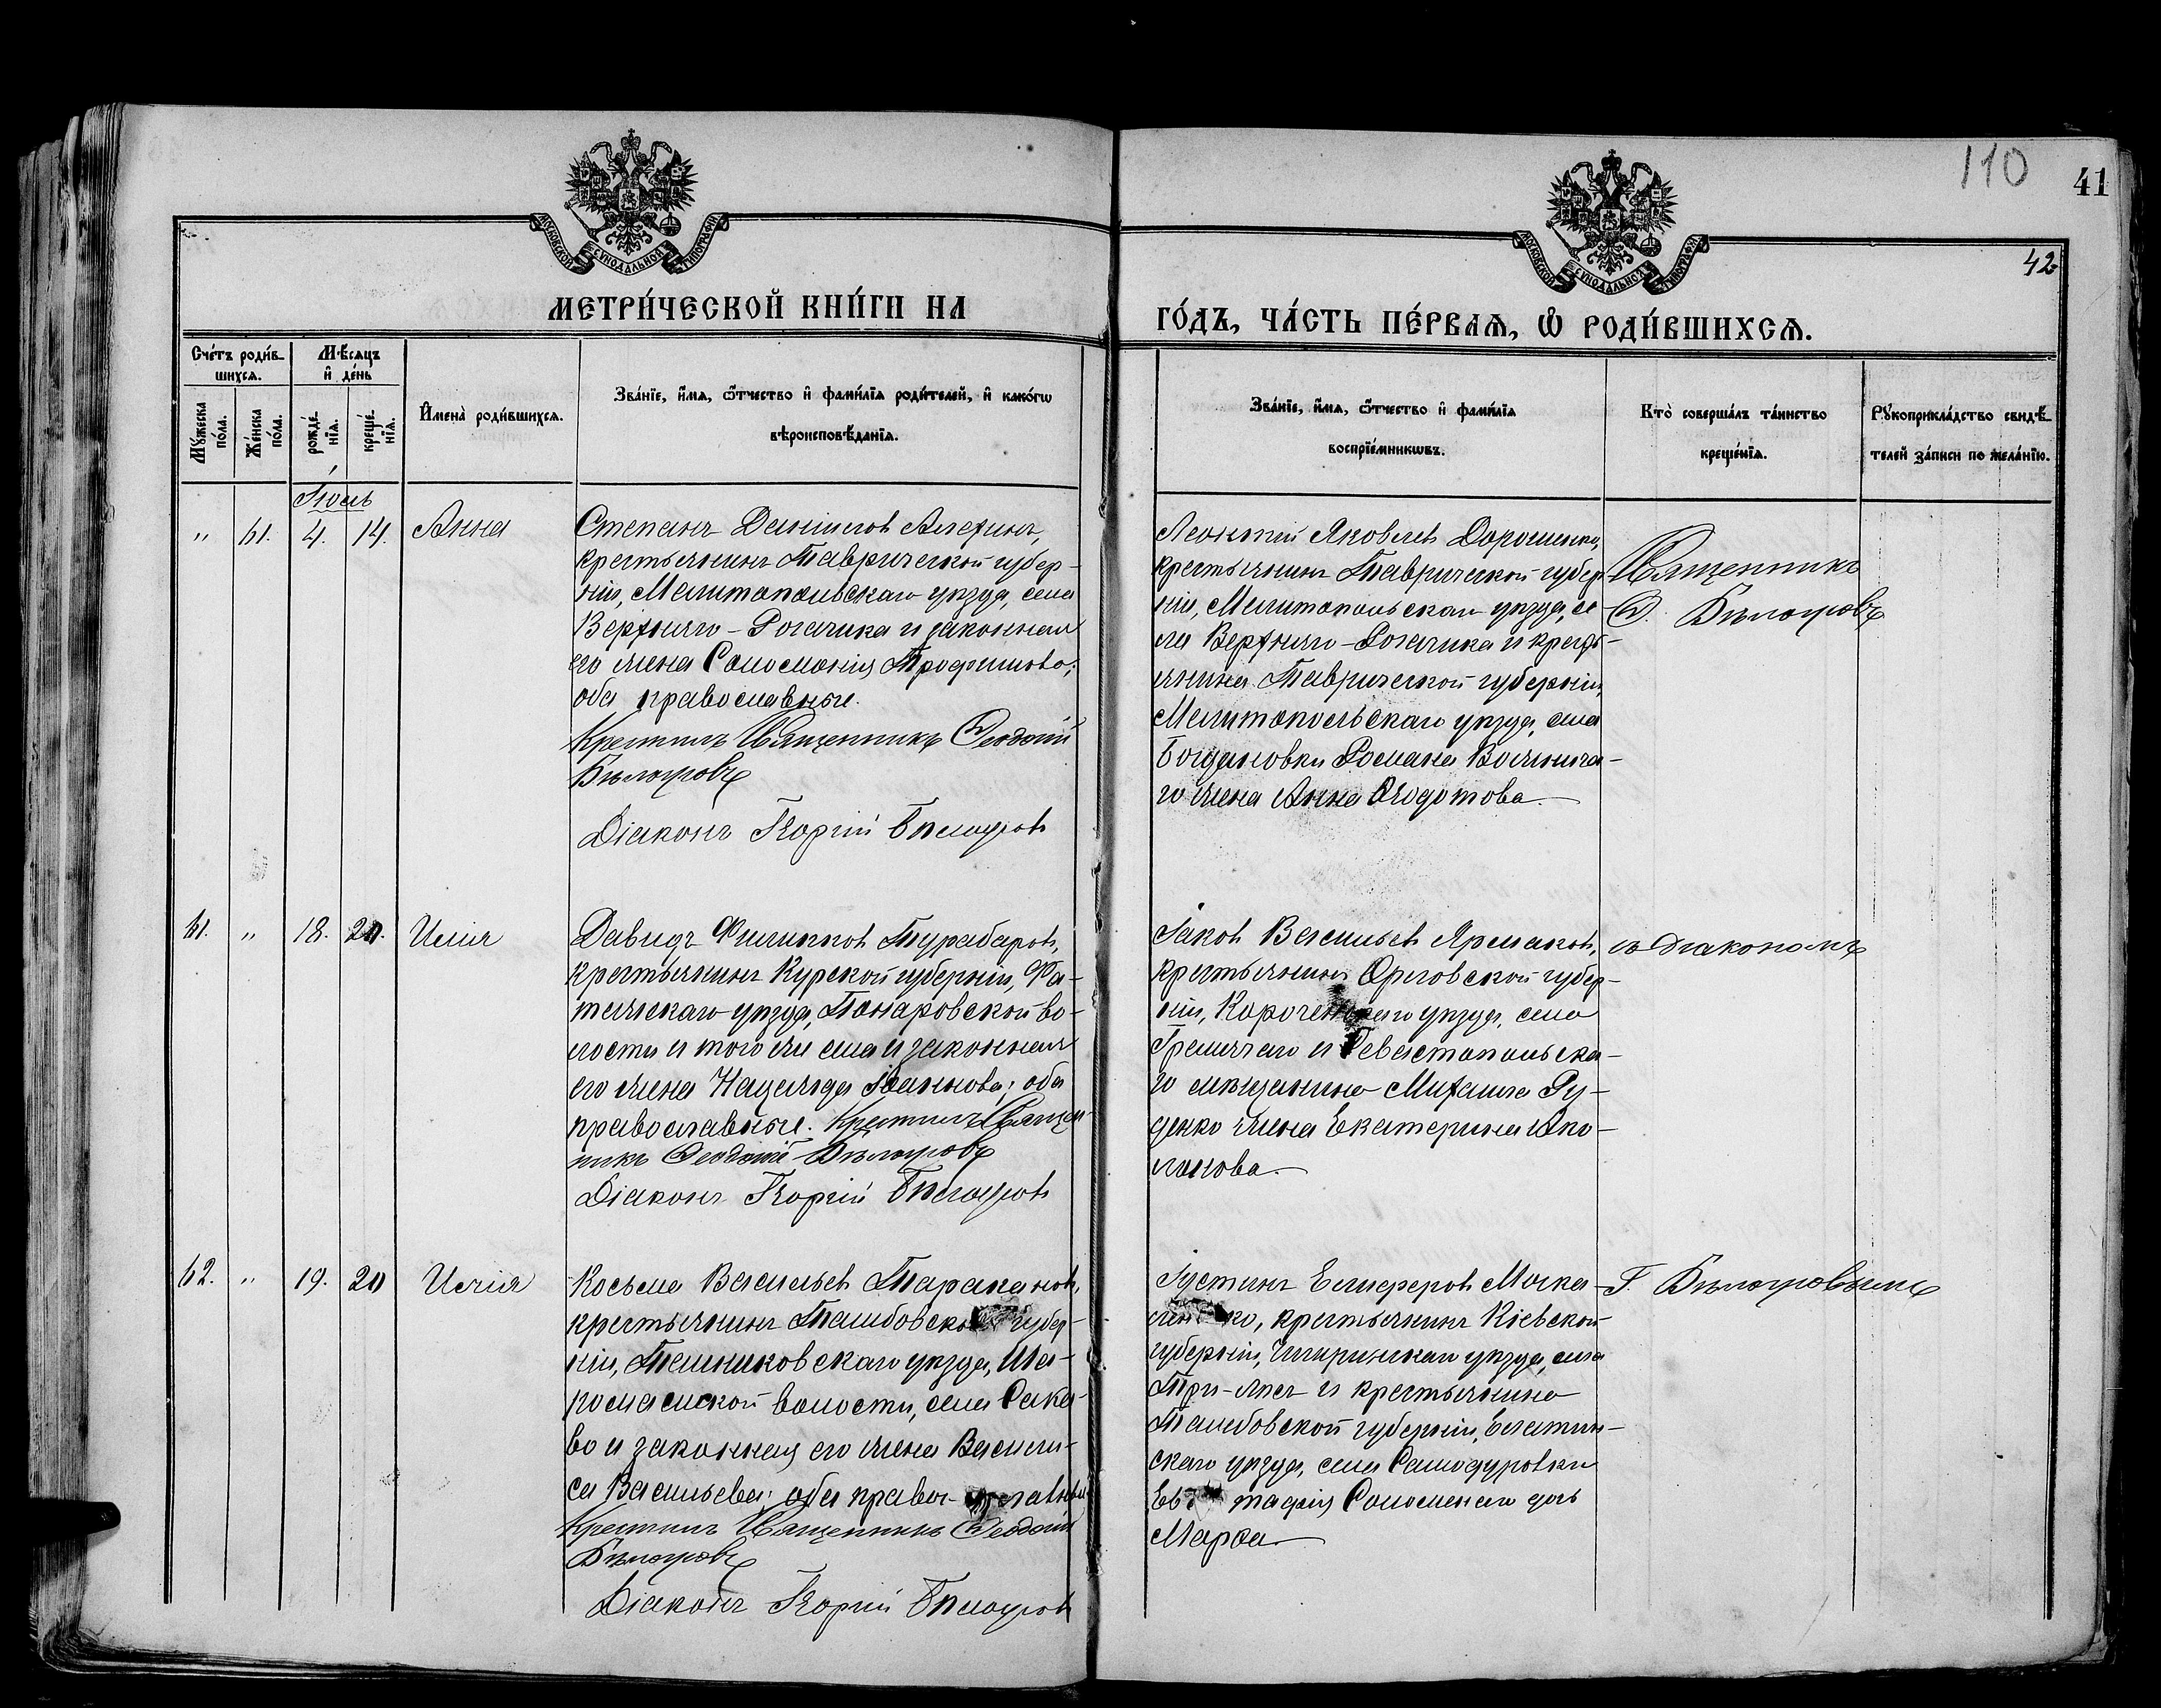 110
41
42
МОСКОВСКОЙ СѴНОДАЛЬНОЙ ТИПОГРАФІИ
МОСКОВСКОЙ СѴНОДАЛЬНОЙ ТИПОГРАФІИ
МЕТРИ́ЧЕСКОЙ КНИ́ГИ НА
ГО́ДЪ, ЧА́СТЬ ПЕ́РВАѦ, Ѡ҆ РОДИ́ВШИХСѦ.
Сче́тъ роди́в-
шихсѧ.
Мѣ́сѧцъ
и҆ де́нь
Мꙋ́жеска
по́ла.
Же́нска
по́ла.
рожде́-
нїѧ.
креще́-
нїѧ.
И҆мена̀ роди́вшихсѧ.
Зва́нїе, и҆́мѧ, ѻ҆́тчество и҆ фами́лїѧ роди́телей, и҆ како́гѡ
вѣроисповѣ́данїѧ.
Зва́нїе, и҆́мѧ, ѻ҆́тчество и҆ фами́лїѧ
воспрїе́мникѡвъ.
Кто̀ соверша́лъ та́инство
креще́нїѧ.
Рꙋкоприкла́дство свидѣ́-
телей за́писи по жела́нїю.
Іюль
" 61. 4. 14. Анна
Степанъ Даніиловъ Алехинъ,
крестьянинъ Таврической губер-
ніи, Мелитопольскаго уѣзда, села
Верхняго-Рогачика и законная
его жена Соломонія Трофимова;
оба православные.
Крестилъ Священникъ Ѳеодосій
Бѣлоусовъ
Діаконъ Георгій Бѣлоусовъ
Леонтій Яковлевъ Дорошенко,
крестьянинъ Таврической губер
ніи, Мелитопольскаго уѣзда, се-
ла Верхняго-Рогачика и кресть-
янина Таврической губерніи,
Мелитопольскаго уѣзда, села
Богдановки Романа
го жена Анна Ѳеодотова.
Священникъ
Ѳ. Бѣлоусовъ
61. " 18. 20. Илія
Давидъ Филипповъ Турабаровъ,
крестьянинъ Курской губерніи, Фа-
тежскаго уѣзда, Понаровской во-
лости и того же села и законная
его жена Надежда Іоаннова; оба
православные. Крестилъ Священ-
никъ Ѳеодосій Бѣлоусовъ
Діаконъ Георгій Бѣлоусовъ
Іаковъ Васильевъ Ярмаковъ,
крестьянинъ Орловской губер-
ніи, Короченскаго уѣзда, села
и Севастопольска-
го мѣщанина Михаила Ру-
денко жена Екатерина Апо-
лонова.
съ діакономъ
62. " 19. 20 Илія
Косьма Васильевъ Таракановъ,
крестьянинъ Тамбовской губер-
ніи, Темниковскаго уѣзда, Ша-
ромасской волости, села Сака-
во и законная его жена Васили-
са Васильева; оба право-славные
Крестилъ Священникъ Ѳеодосій
Бѣлоусовъ
Діаконъ Георгій Бѣлоусовъ
Іустинъ Елиферовъ Моска-
ленко, крестьянинъ Кіевской
губерніи, Чигиринскаго уѣзда, села
Три-лѣса и крестьянина
Тамбовской губерніи, Елатом-
скаго уѣзда, села Самодуровки
дочь
Марѳа
Г. Бѣлоусовымъ